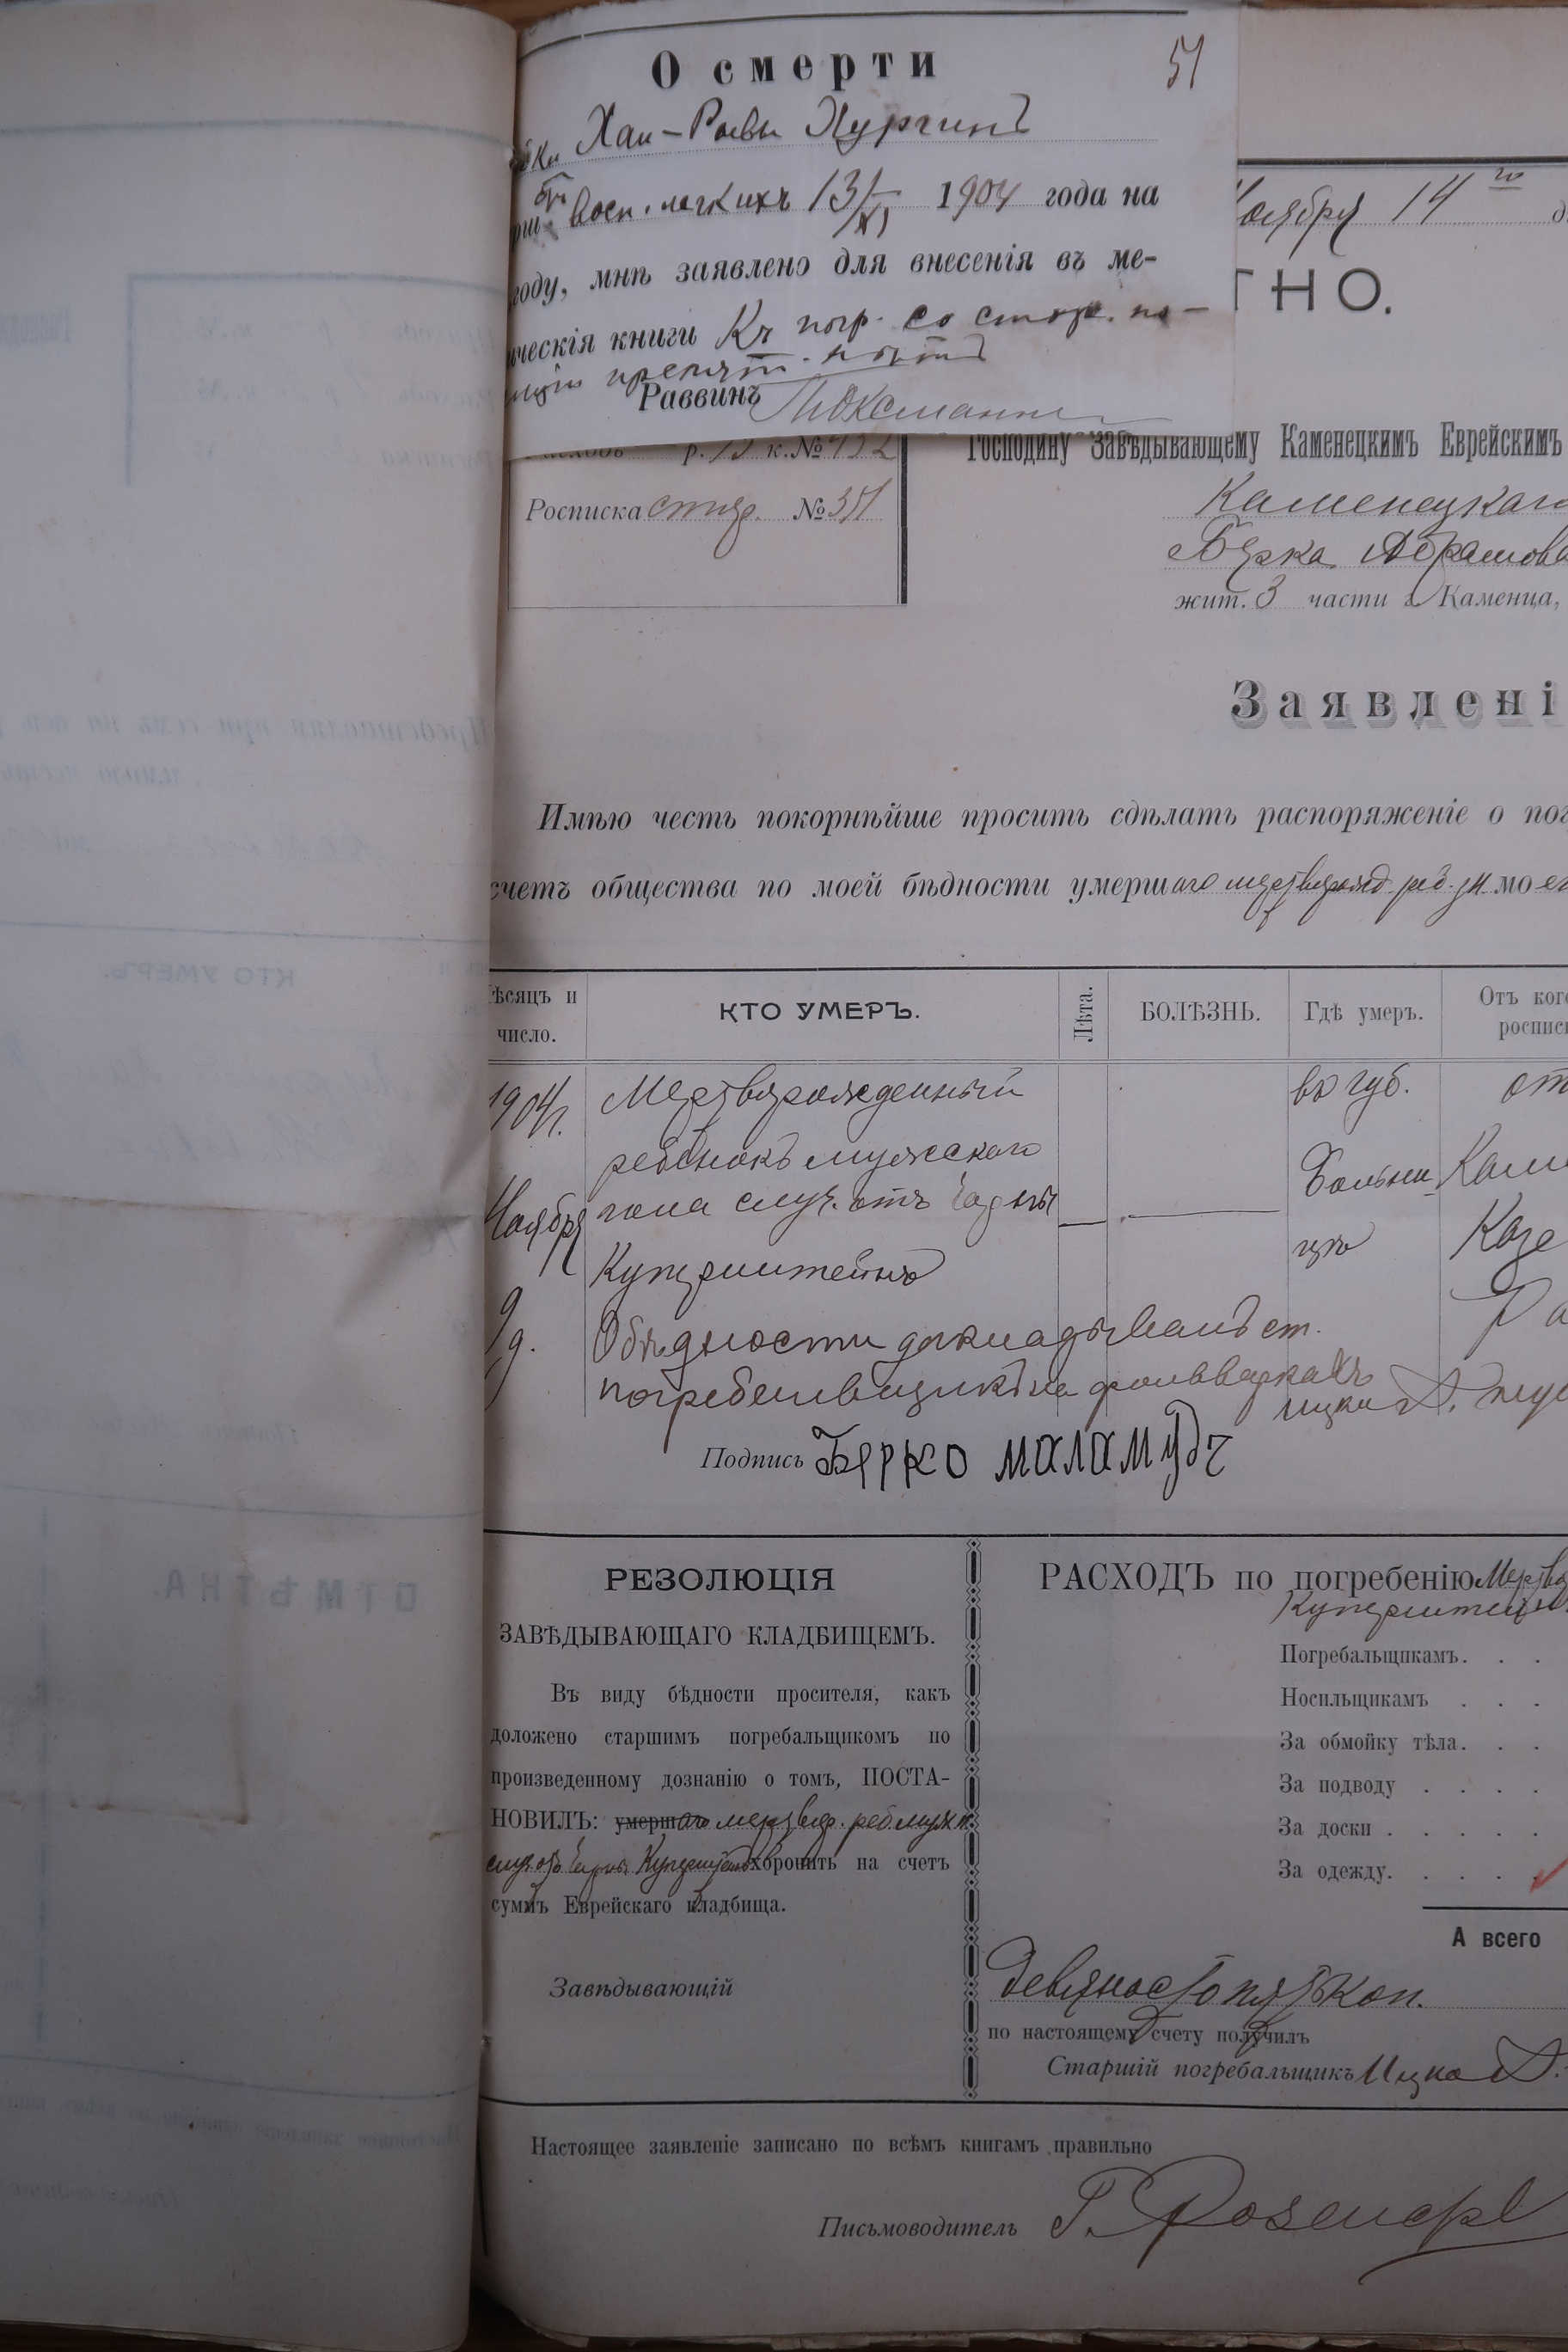 О смерти
51
Хаи-Ривы Хургинъ
восп. легкихъ 13/XI 1904 года на
году, мнѣ заявлено для внесенія въ ме-
ическія книги Къ погр. со стор. по-
препят. нѣтъ
Раввинъ
Ноября 14 го
ТНО.
р. 15 к. № 432
Росписка стар. № 351
Господину Завѣдывающему Каменецкимъ Еврейскимъ
Каменецкаго
Берка Абрамова
жит. 3 части г. Каменца,
Заявлені
Имѣю честь покорнѣйше просить сдѣлать распоряженіе о пог
счетъ общества по моей бѣдности умершаго мертворожд. реб. мо
ѣсяцъ и число.
КТО УМЕРЪ.
Лѣта.
БОЛѢЗНЬ.
Гдѣ умеръ.
Отъ кого росписк
1904 г.
Ноября
9 д.
Мертворожденный
ребенокъ мужескаго
пола случ. отъ Чарны
Куперштейнъ
въ губ.
больни
цѣ
от
Каме
Казе
Ра
О бѣдности докладывалъ ст.
погребальщикъ на фольваркахъ
Ицко
Подпись Берко маламудъ
РЕЗОЛЮЦІЯ
ЗАВѢДЫВАЮЩАГО КЛАДБИЩЕМЪ.
Въ виду бѣдности просителя, какъ
доложено старшимъ погребальщикомъ по
произведенному дознанію о томъ, ПОСТА-
НОВИЛЪ: умершаго мертвор. реб. муж. п.
случ. отъ Чарны Куперштейнъ хоронить на счетъ
суммъ Еврейскаго кладбища.
Завѣдывающій
РАСХОДЪ по погребенію Мертво
Куперштейнъ
Погребальщикамъ. . .
Носильщикамъ . . .
За обмойку тѣла. . .
За подводу . . . .
За доски . . . . .
За одежду. . . . .
А всего
Девяносто пять коп.
по настоящему счету получилъ
Старшій погребальщикъ Ицко
Настоящее заявленіе записано по всѣмъ книгамъ правильно
Письмоводитель